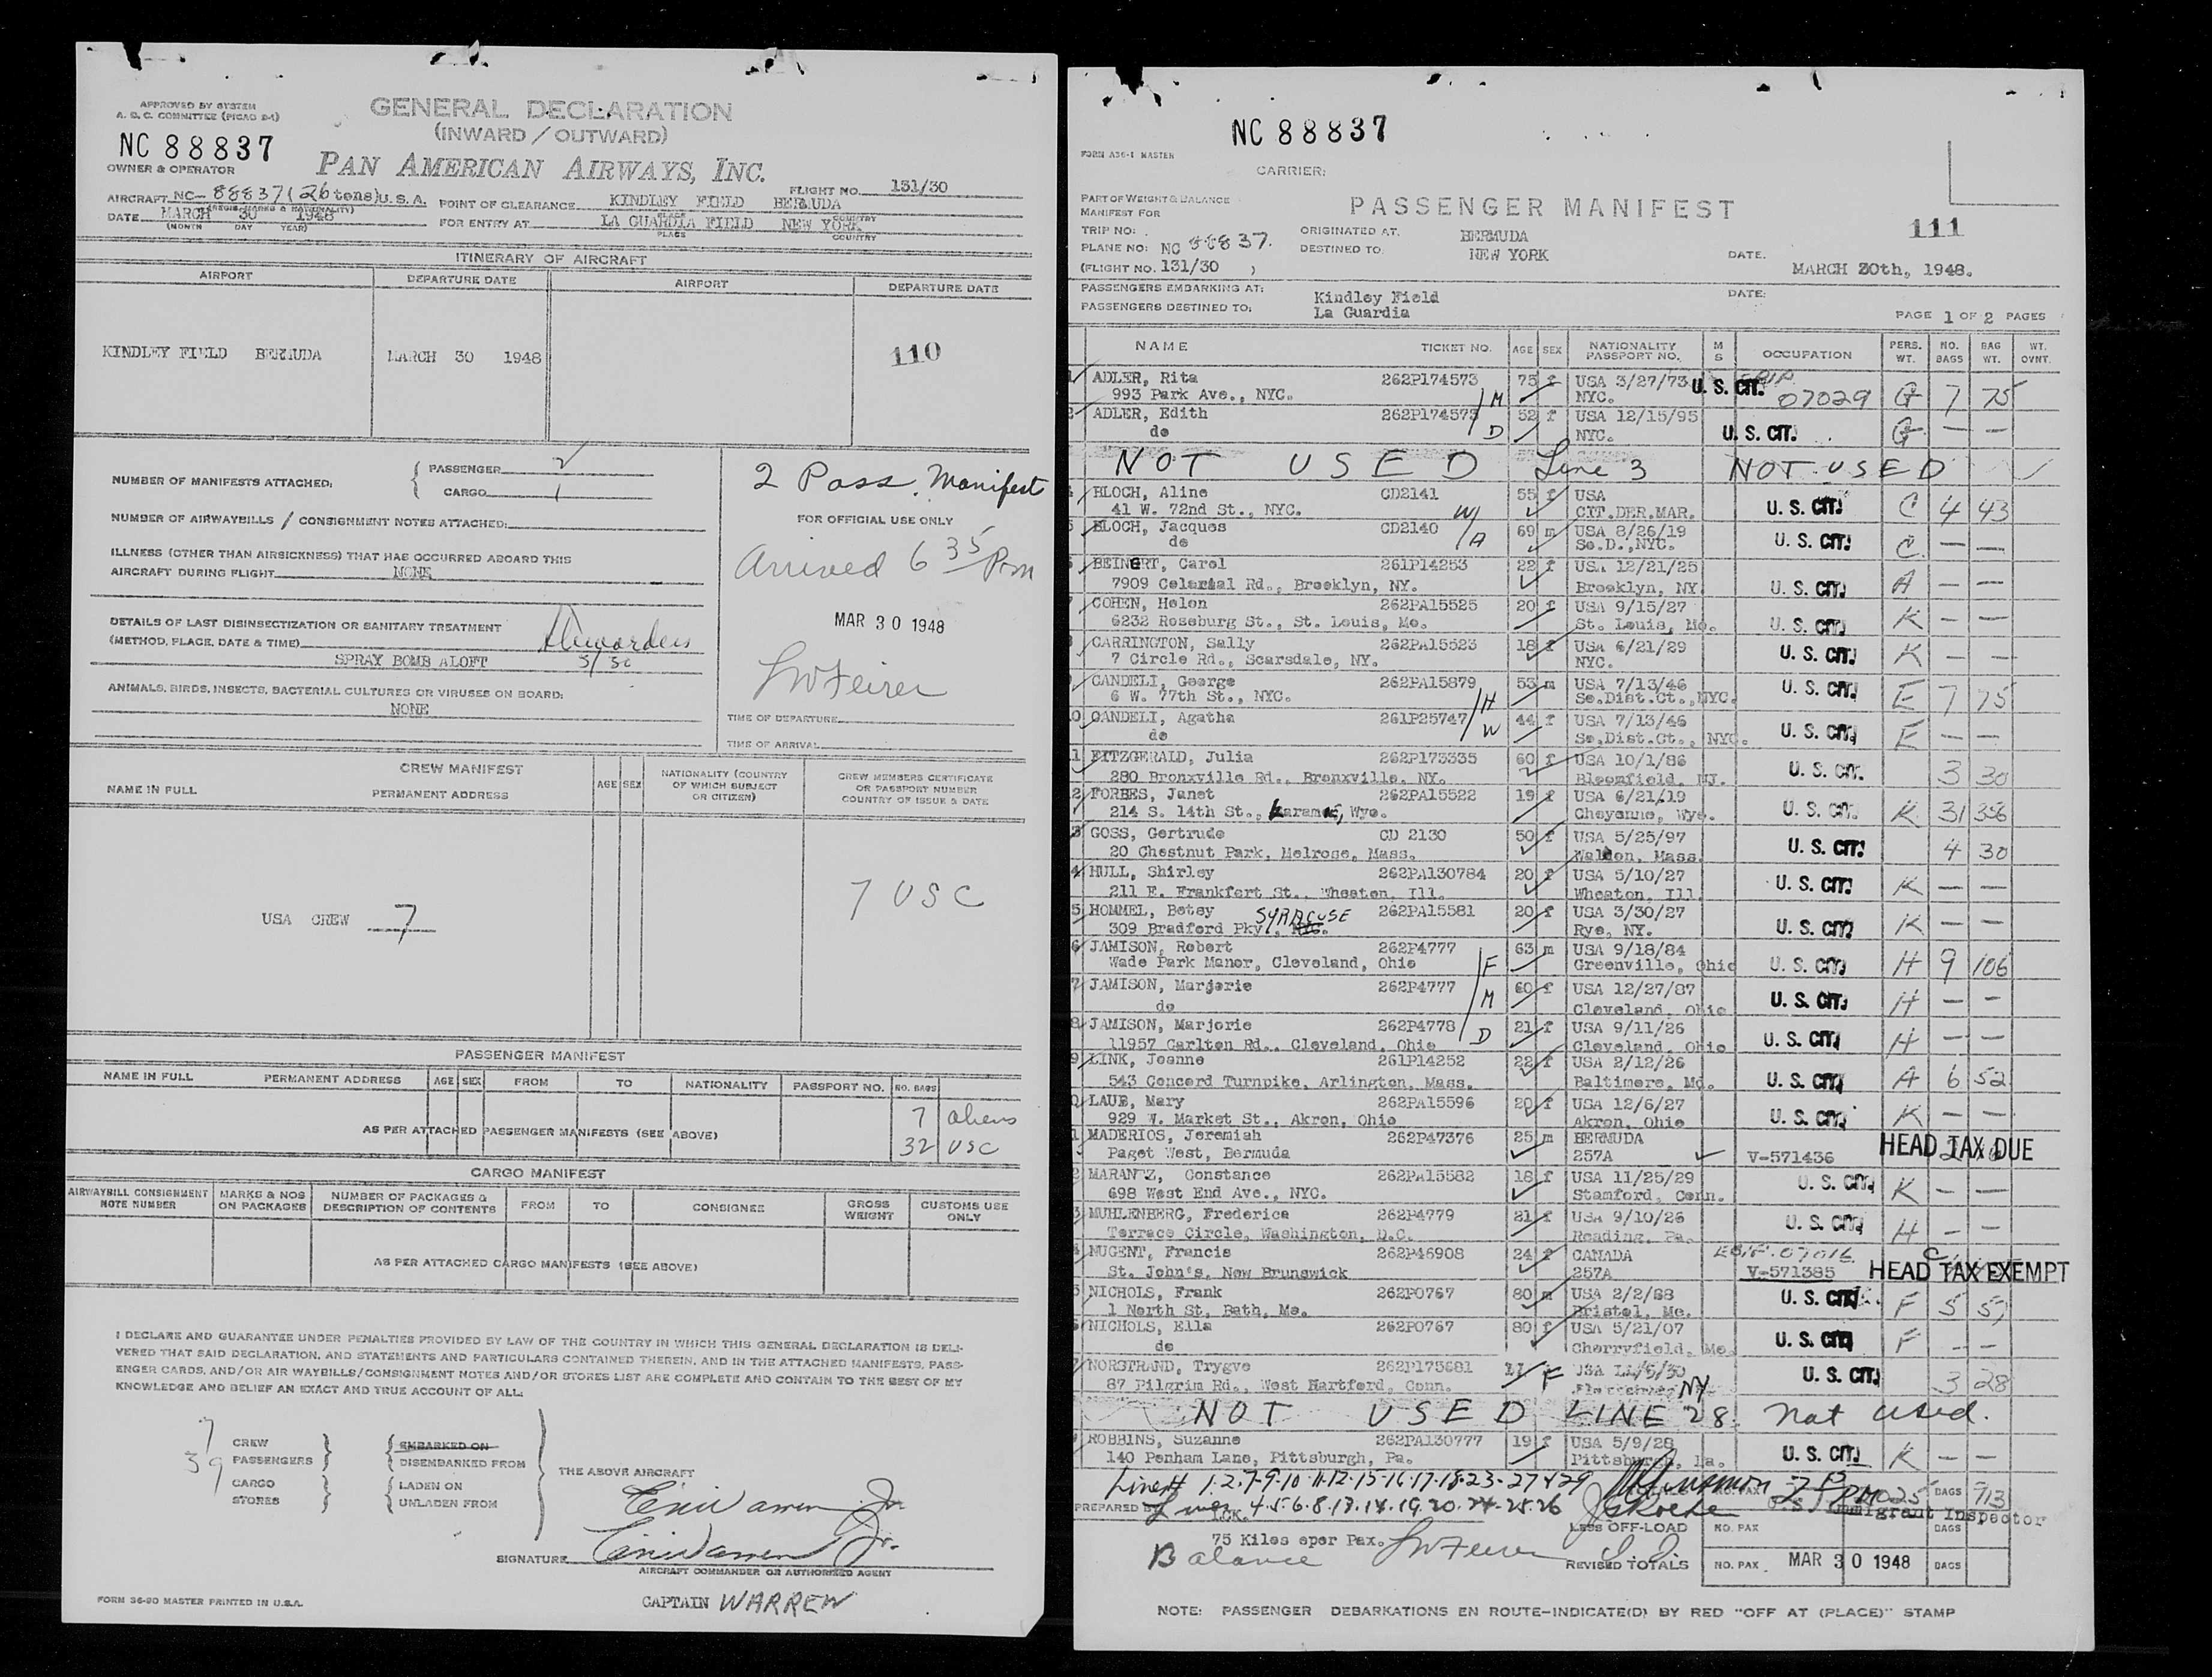 APPROVED BY SYSTEM
A. D. C. COMMITTEE (PICAO 2-1)
GENERAL DECLARATION
(INWARD / OUTWARD)
NC 88837
OWNER & OPERATOR
PAN AMERICAN AIRWAYS, INC.
FLIGHT NO. 131/30
AIRCRAFT NC- 88837 (26 tons) U.S.A.
(REGIS. MARKS & NATIONALITY)
POINT OF CLEARANCE KINDLEY FIELD BERMUDA
PLACE COUNTRY
DATE MARCH 30 1948
(MONTH DAY YEAR)
FOR ENTRY AT LA GUARDIA FIELD NEW YORK
PLACE COUNTRY
ITINERARY OF AIRCRAFT
AIRPORT DEPARTURE DATE AIRPORT DEPARTURE DATE
KINDLEY FIELD BERMUDA MARCH 30 1948 110
NUMBER OF MANIFESTS ATTACHED:
PASSENGER 2
CARGO 1
2 Pass. Manifest
NUMBER OF AIRWAYBILLS / CONSIGNMENT NOTES ATTACHED:
FOR OFFICIAL USE ONLY
ILLNESS (OTHER THAN AIRSICKNESS) THAT HAS OCCURRED ABOARD THIS
AIRCRAFT DURING FLIGHT NONE
Arrived 6 35 Pm
MAR 30 1948
DETAILS OF LAST DISINSECTIZATION OR SANITARY TREATMENT
(METHOD, PLACE, DATE & TIME)
SPRAY BOMB ALOFT 3/30
ANIMALS, BIRDS, INSECTS, BACTERIAL CULTURES OR VIRUSES ON BOARD:
NONE
TIME OF DEPARTURE
TIME OF ARRIVAL
CREW MANIFEST
NAME IN FULL PERMANENT ADDRESS AGE SEX NATIONALITY (COUNTRY OF WHICH SUBJECT OR CITIZEN) CREW MEMBERS CERTIFICATE OR PASSPORT NUMBER COUNTRY OF ISSUE & DATE
USA CREW 7 7 USC
PASSENGER MANIFEST
NAME IN FULL PERMANENT ADDRESS AGE SEX FROM TO NATIONALITY PASSPORT NO. NO. BAGS
7 aliens
AS PER ATTACHED PASSENGER MANIFESTS (SEE ABOVE)
32 USC
CARGO MANIFEST
AIRWAYBILL CONSIGNMENT NOTE NUMBER MARKS & NOS ON PACKAGES NUMBER OF PACKAGES & DESCRIPTION OF CONTENTS FROM TO CONSIGNEE GROSS WEIGHT CUSTOMS USE ONLY
AS PER ATTACHED CARGO MANIFESTS (SEE ABOVE)
I DECLARE AND GUARANTEE UNDER PENALTIES PROVIDED BY LAW OF THE COUNTRY IN WHICH THIS GENERAL DECLARATION IS DELI-
VERED THAT SAID DECLARATION, AND STATEMENTS AND PARTICULARS CONTAINED THEREIN, AND IN THE ATTACHED MANIFESTS, PASS-
ENGER CARDS, AND/OR AIR WAYBILLS/CONSIGNMENT NOTES AND/OR STORES LIST ARE COMPLETE AND CONTAIN TO THE BEST OF MY
KNOWLEDGE AND BELIEF AN EXACT AND TRUE ACCOUNT OF ALL:
7 CREW
39 PASSENGERS
CARGO
STORES
EMBARKED ON
DISEMBARKED FROM
LADEN ON
UNLADEN FROM
THE ABOVE AIRCRAFT
SIGNATURE
AIRCRAFT COMMANDER OR AUTHORIZED AGENT
CAPTAIN WARREN
FORM 36-90 MASTER PRINTED IN U.S.A.
NC 88837
FORM A36-1 MASTER
CARRIER:
PART OF WEIGHT & BALANCE
MANIFEST FOR
PASSENGER MANIFEST
111
TRIP NO:
PLANE NO: NC 88837.
(FLIGHT NO. 131/30 )
ORIGINATED AT. BERMUDA
DESTINED TO. NEW YORK
DATE. MARCH 30th, 1948.
PASSENGERS EMBARKING AT: Kindley Field
DATE:
PASSENGERS DESTINED TO: La Guardia
PAGE 1 OF 2 PAGES
NAME TICKET NO. AGE SEX NATIONALITY PASSPORT NO. M S OCCUPATION PERS. WT. NO. BAGS BAG WT. WT. OVNT.
ADLER, Rita 262P174573 75 f USA 3/27/73 U. S. CIT.
993 Park Ave., NYC. M NYC. 07029 G 7 75
2 ADLER, Edith 262P174573 52 f USA 12/15/95
do D NYC. U. S. CIT. G — —
NOT USED Line 3 NOT USED
BLOCH, Aline CD2141 55 f USA U. S. CIT. C 4 43
41 W. 72nd St., NYC. W CIT.DER.MAR.
5 BLOCH, Jacques CD2140 69 m USA 8/26/19 U. S. CIT. C — —
do So.D.,NYC.
BEINERT, Carol 261P14253 22 f USA 12/21/25
7909 Colonial Rd., Brooklyn, NY. Brooklyn, NY U. S. CIT. A — —
COHEN, Helen 262PA15525 20 f USA 9/15/27
6232 Roseburg St., St. Louis, Mo. St. Louis, Mo. U. S. CIT. K — —
CARRINGTON, Sally 262PA15523 18 f USA 6/21/29
7 Circle Rd., Scarsdale, NY. NYC. U. S. CIT. K — —
CANDELI, George 262PA15879 53 m USA 7/13/46 U. S. CIT. E 7 75
6 W. 77th St., NYC. H So.Dist.Ct., NYC.
0 CANDELI, Agatha 261P25747 44 f USA 7/13/46 U. S. CIT. E — —
do W So.Dist.Ct., NYC.
1 FITZGERALD, Julia 262P173335 60 f USA 10/1/86 U. S. CIT. 3 30
280 Bronxville Rd., Bronxville, NY. Bloomfield, NJ.
2 FORBES, Janet 262PA15522 19 f USA 6/21/19
214 S. 14th St., Laramie, Wyo. Cheyenne, Wyo. U. S. CIT. K 31 356
3 GOSS, Gertrude CD 2130 50 f USA 5/25/97
20 Chestnut Park, Melrose, Mass. Malden, Mass. U. S. CIT. 4 30
4 HULL, Shirley 262PA130784 20 f USA 5/10/27
211 E. Frankfort St., Wheaton, Ill. Wheaton, Ill. U. S. CIT. K — —
5 HOMMEL, Betsy SYRACUSE 262PA15581 20 f USA 3/30/27
309 Bradford Pky., Rye, NY. U. S. CIT. K — —
6 JAMISON, Robert 262P4777 63 m USA 9/18/84
Wade Park Manor, Cleveland, Ohio F Greenville, Ohio U. S. CIT. H 9 106
7 JAMISON, Marjorie 262P4777 60 f USA 12/27/87
do M Cleveland, Ohio U. S. CIT. H — —
8 JAMISON, Marjorie 262P4778 21 f USA 9/11/26
11957 Carlton Rd., Cleveland, Ohio D Cleveland, Ohio U. S. CIT. H — —
9 LINK, Joanne 261P14252 22 f USA 2/12/26
543 Concord Turnpike, Arlington, Mass. Baltimore, Md. U. S. CIT. A 6 52
LAUB, Mary 262PA15596 20 f USA 12/6/27
929 W. Market St., Akron, Ohio Akron, Ohio U. S. CIT. K — —
1 MADERIOS, Jeremiah 262P47376 25 m BERMUDA HEAD TAX DUE
Paget West, Bermuda 257A V-571436
2 MARANTZ, Constance 262PA15582 18 f USA 11/25/29
698 West End Ave., NYC. Stamford, Conn. U. S. CIT. K — —
3 MUHLENBERG, Frederica 262P4779 21 f USA 9/10/26
Terrace Circle, Washington, D.C. Reading, Pa. U. S. CIT. H — —
NUGENT, Francis 262P46908 24 f CANADA
St. John's, New Brunswick 257A V-571385 HEAD TAX EXEMPT
5 NICHOLS, Frank 262P0767 80 m USA 2/2/68 U. S. CIT.
1 North St, Bath, Me. Bristol, Me. F 5 57
NICHOLS, Ella 262P0767 80 f USA 5/21/07
do Cherryfield, Me. U. S. CIT. F — —
NORSTRAND, Trygve 262P173681 F
87 Pilgrim Rd., West Hartford, Conn. NY U. S. CIT. 3 28
NOT USED LINE 28. not used.
ROBBINS, Suzanne 262PA130777 19 f USA 5/9/28
140 Penham Lane, Pittsburgh, Pa. Pittsburgh, Pa. U. S. CIT. K — —
Lines 1-2-7-9-10-11-12-15-16-17-18-23-27 & 29
DAGS 713
PREPARED BY Lines 4-5-6-8-13-14-19-20-24-25-26
U.S. Immigrant Inspector
LCK.
75 Kilos eper Pax.
LESS OFF-LOAD NO. PAX DAGS
Balance
REVISED TOTALS NO. PAX. MAR 30 1948 DAGS
NOTE: PASSENGER DEBARKATIONS EN ROUTE-INDICATE(D) BY RED "OFF AT (PLACE)" STAMP